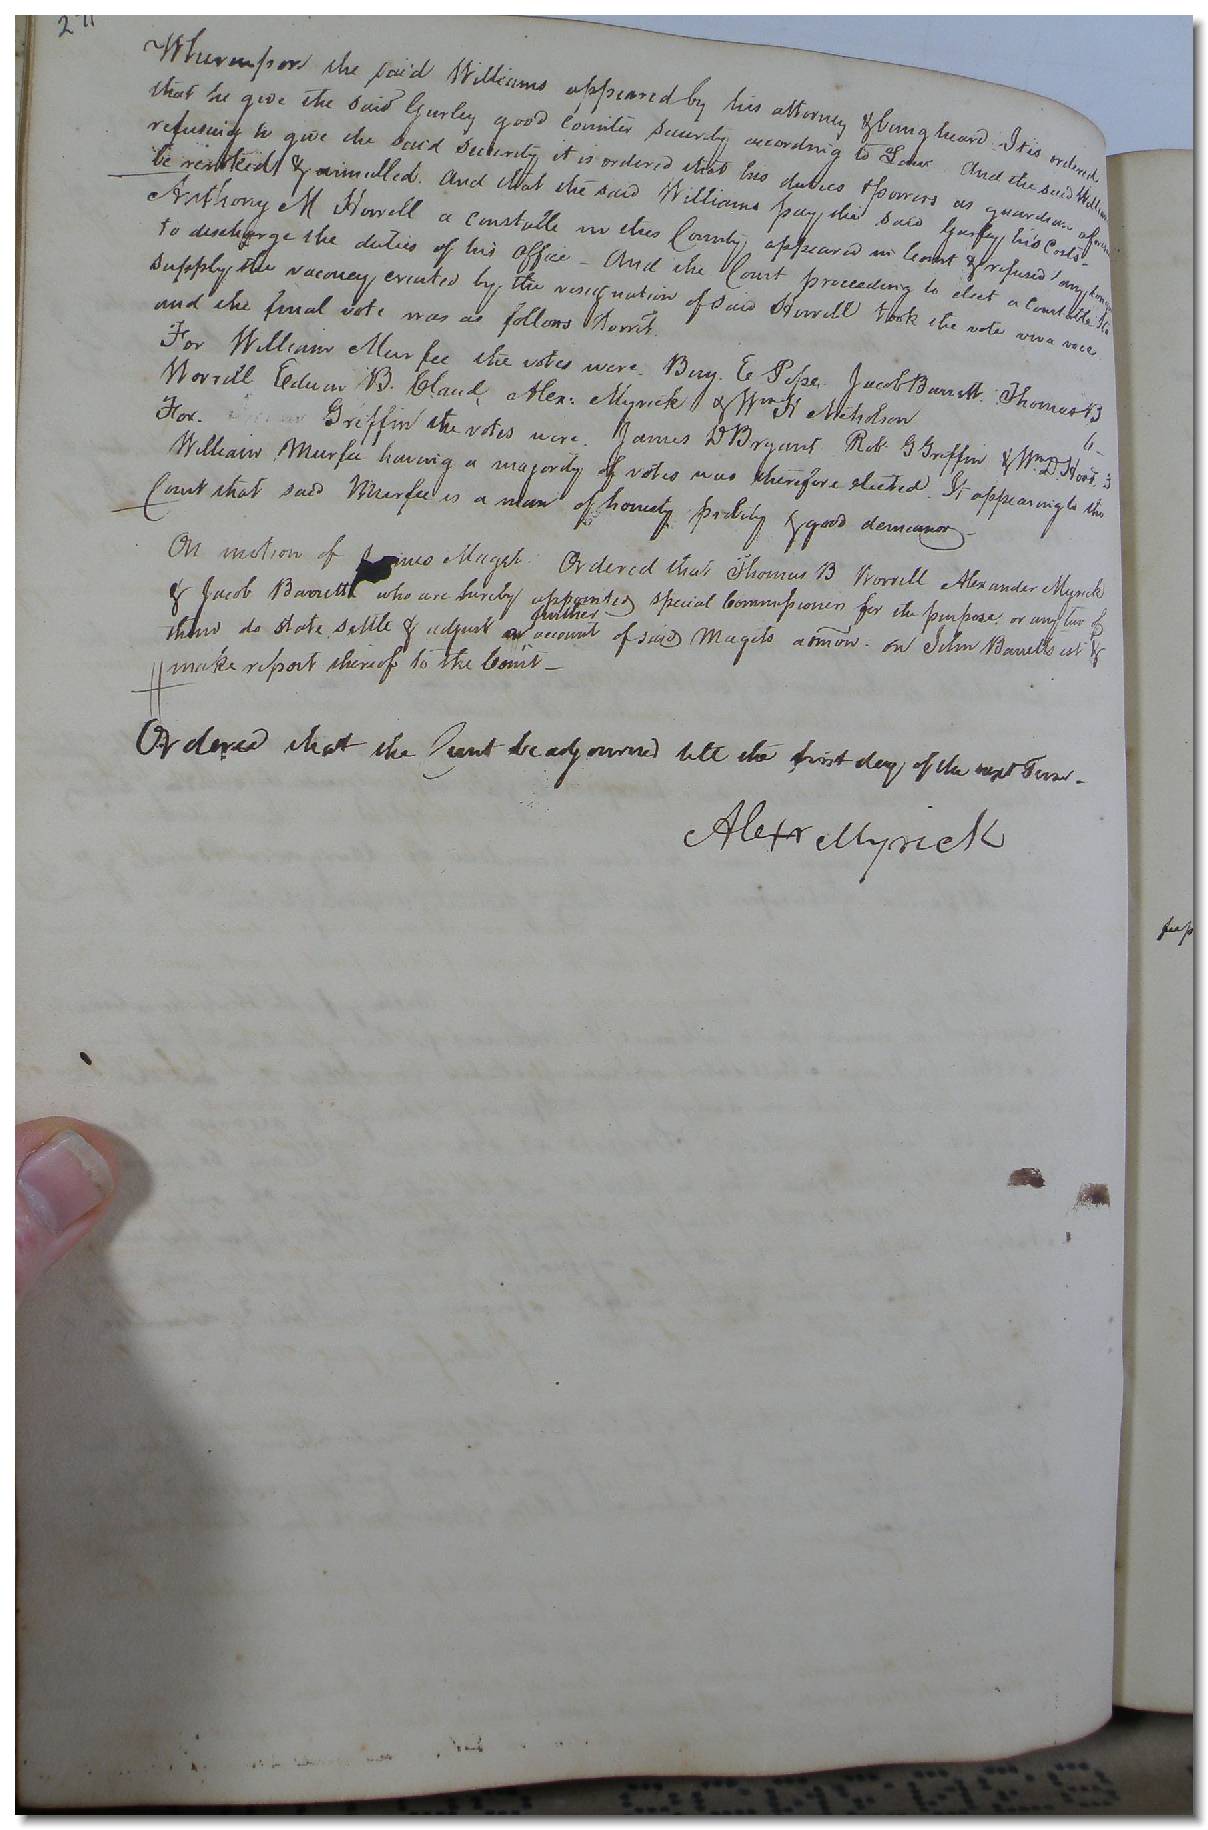 Whereupon the said Williams appeared by his attorney & being heard. It is ordered
that he give the said Gurley good counter security according to Law. And the said Williams
refusing to give the said security it is ordered that his duties & powers as guardian aforesaid
be revoked & annulled. And that the said Williams pay the said Gurley his costs
Anthony M Howell a constable in this County appeared in Court & refused any longer
to discharge the duties of his office - And the Court proceeding to elect a Constable to
supply the vacancy created by the resignation of said Howell took the vote viva voce
and the final vote was as follows to wit.
For William Murfee the votes were. Benj. E Pope. Jacob Barrett. Thomas B
Worrell Edwin B. Claud, Alex. Myrick & Wm H Nicholson 6-
For Griffin the votes were. James D Bryant Rob. G Griffin & Wm D Hood. 3
William Murfee having a majority of votes was therefore elected. It appearing to the
Court that said Murfee is a man of honesty probity & good demeanor-
On motion of James Maget. Ordered that Thomas B Worrell Alexander Myrick
& Jacob Barrett who are hereby appointed special Commissioners for the purpose. or any two of
them do state settle & adjust further account of said Magets admon. on John Barretts est &
make report thereof to the Court-
Ordered that the Court be adjourned till the first day of the next Term-
Alexr Myrick